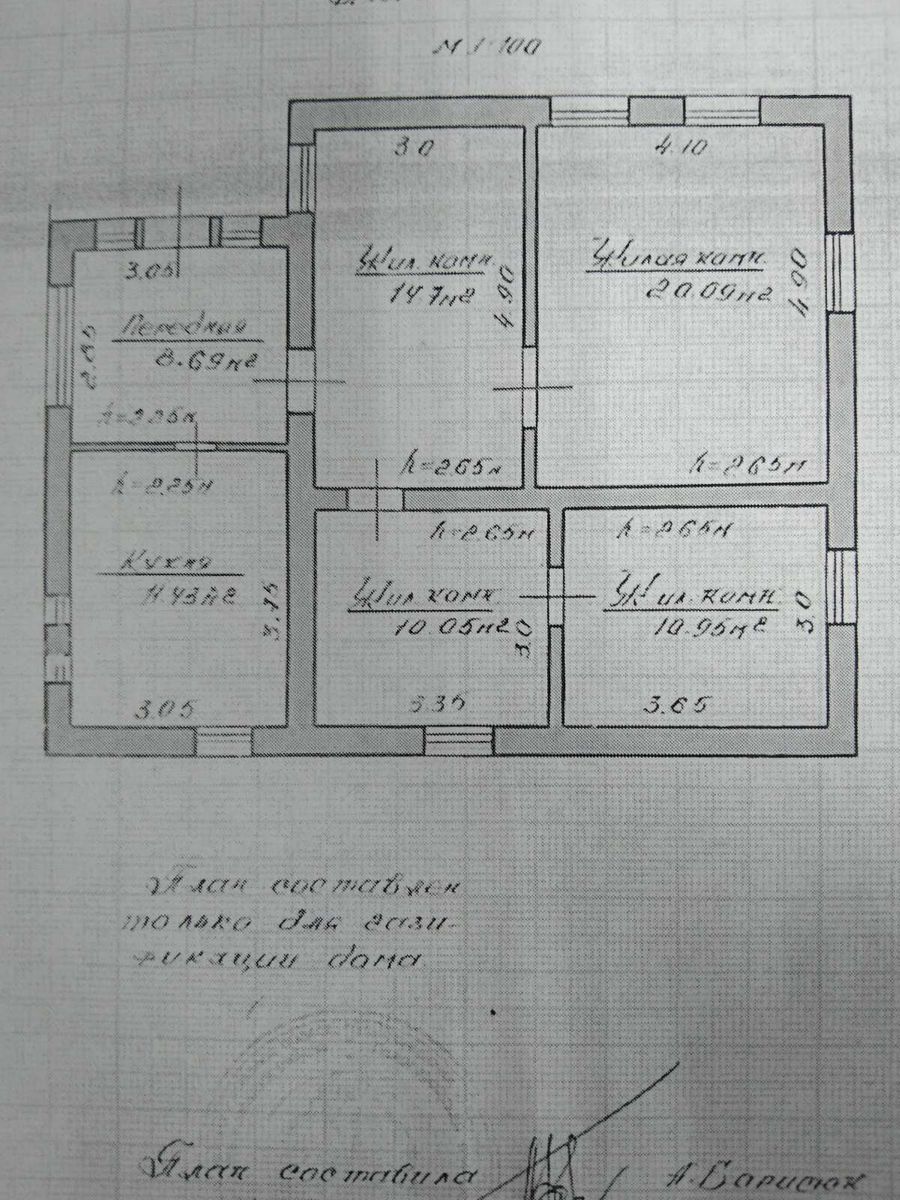 М 1:100
3.0
4.10
3.05
Жил. комн.
14.7м2
4.90
Жилая комн.
20.09м2
4.90
Передняя
8.69м2
2.85
h=2.25м
h=2.65м
h=2.65м
h=2.25м
h=2.65м
h=2.65м
Кухня
11.43м2
3.75
Жил. комн
10.05м2
3.0
Жил. комн
10.95м2
3.0
3.05
3.35
3.65
План составлен
только для гази-
фикации дома
План составила